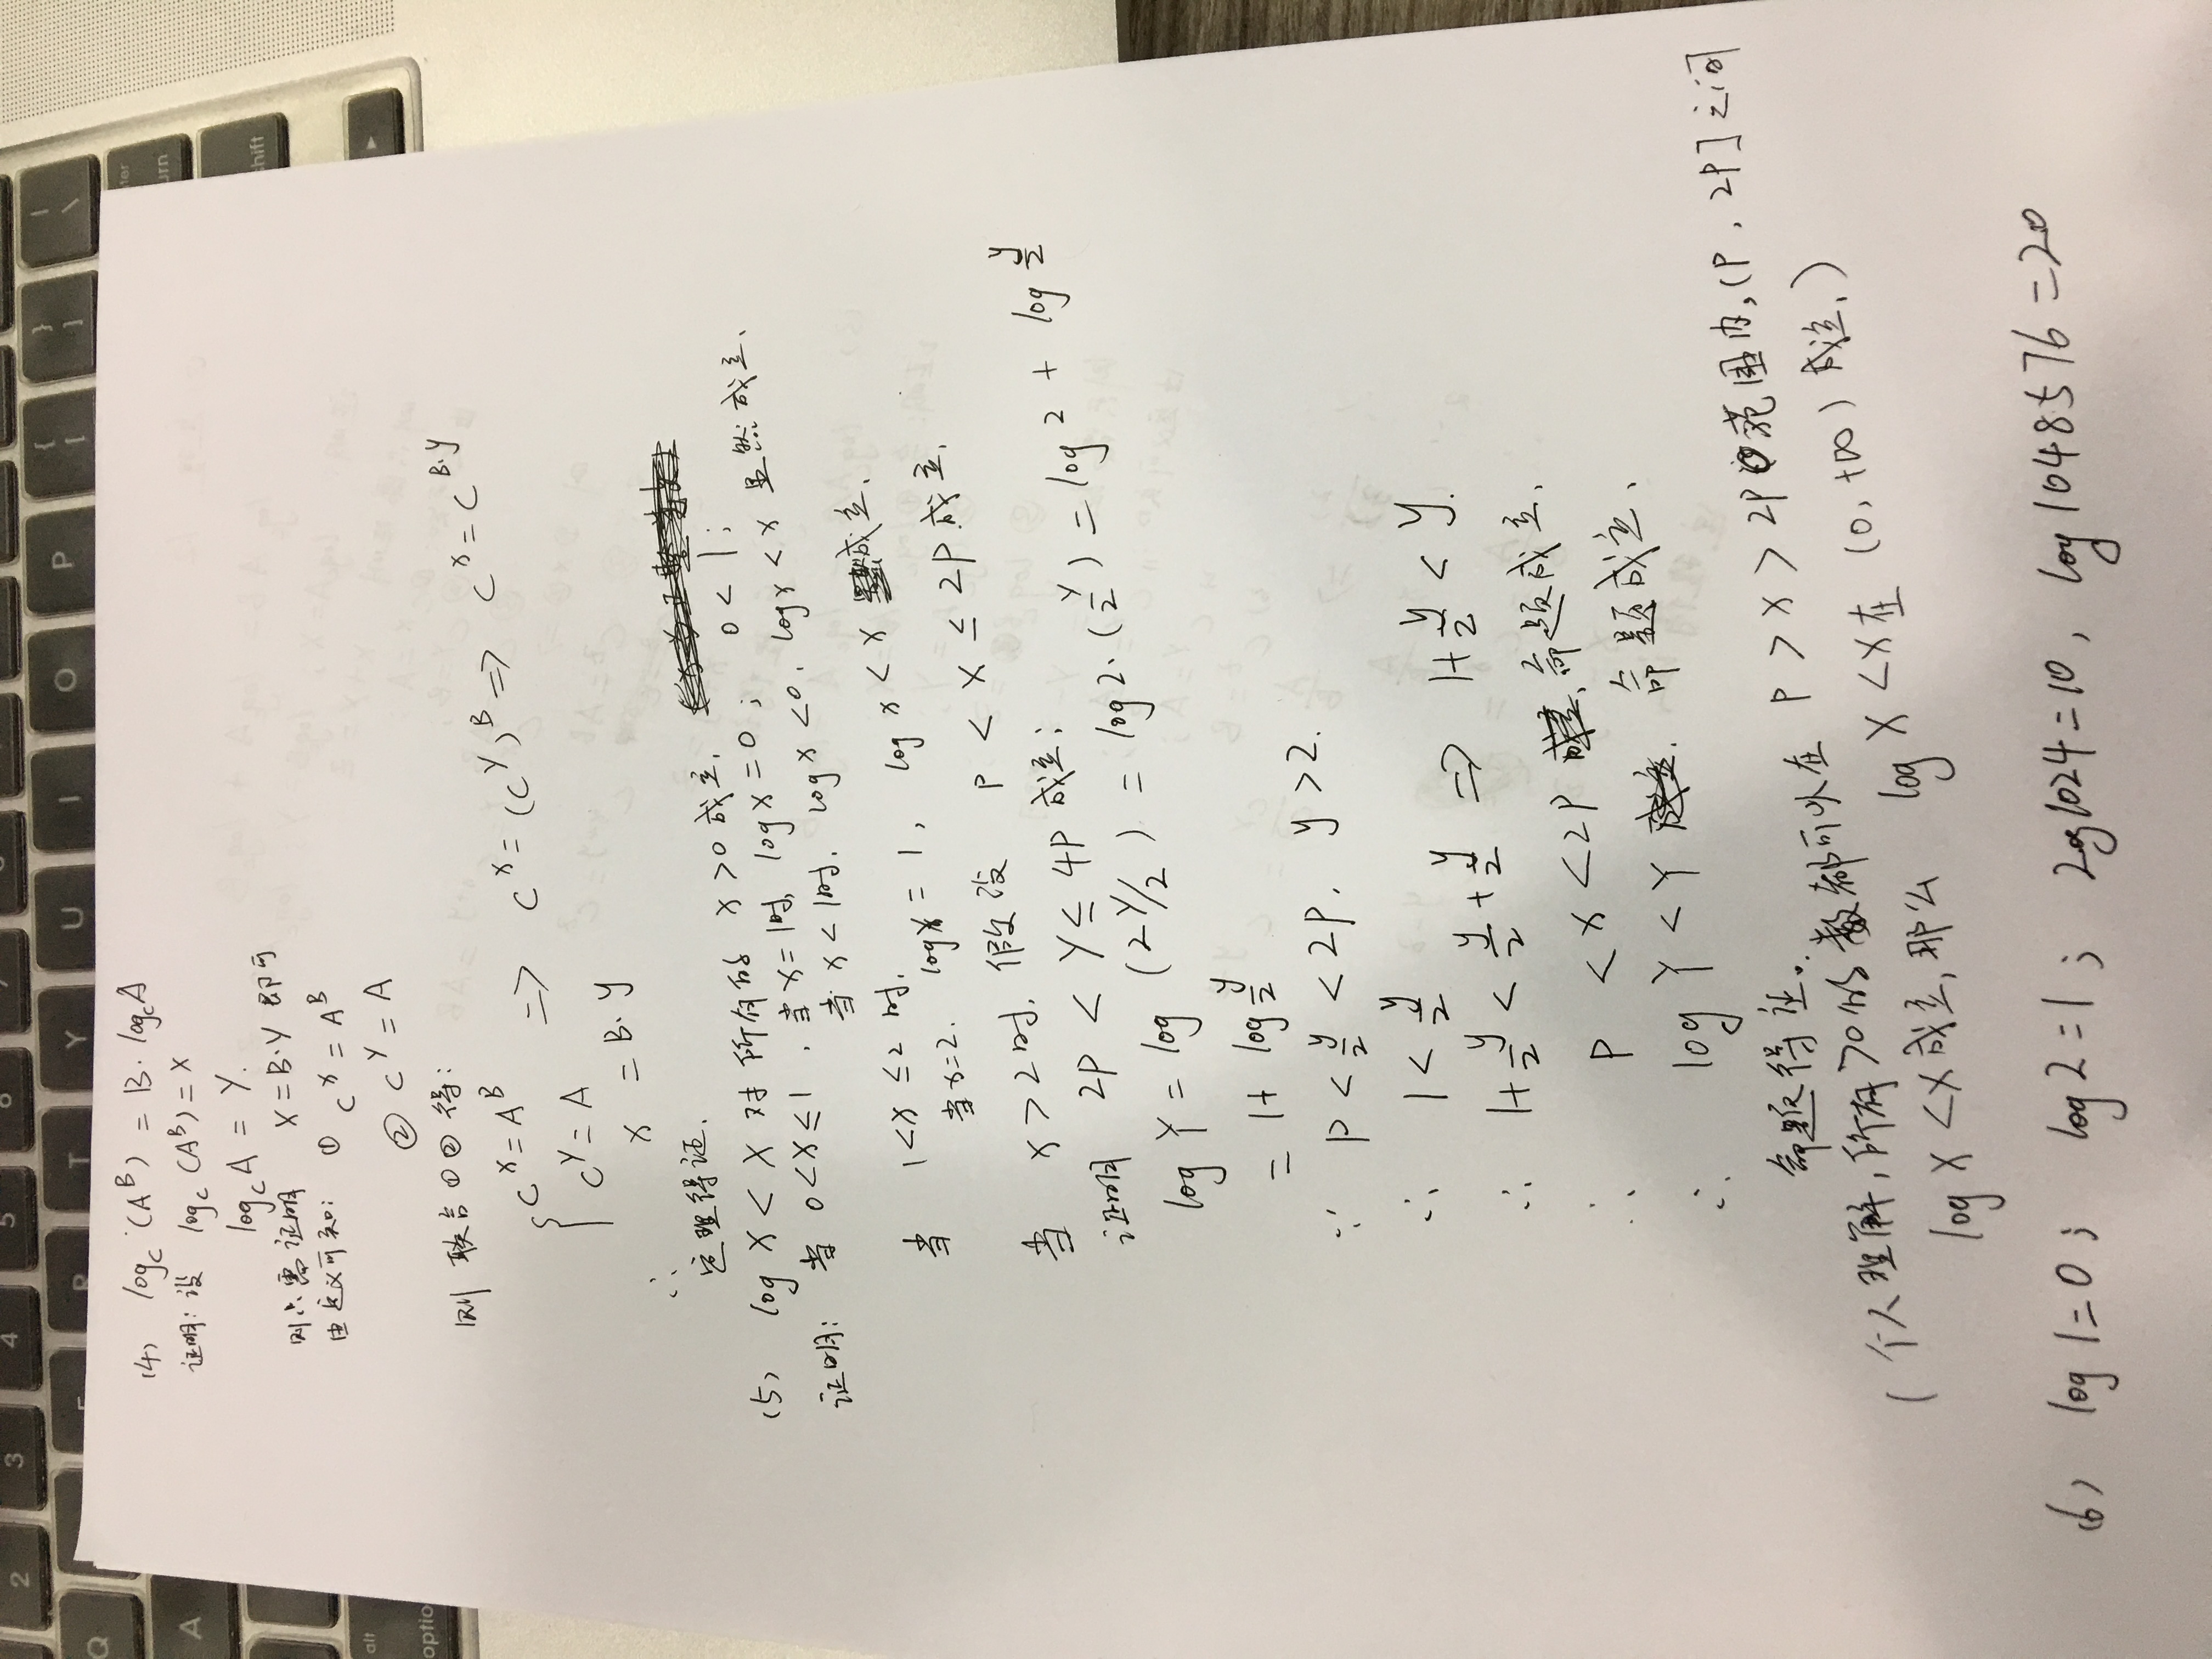 2 3 4 5 6 7 8
Q R T Y U I O P { [ } ] | \
A
alt
optio
urn
shift
(4) log_c (A^B) = B · log_c A
证明: 设 log_c (A^B) = X
log_c A = Y.
则只需证明 X = B·Y 即可
由定义可知: ① C^X = A^B
② C^Y = A
则 联合①②得:
{ C^X = A^B ⇒ C^X = (C^Y)^B ⇒ C^X = C^{B·y}
C^Y = A
∴ x = B·y
定理得证.
(5) log X < X 对所有的 x > 0 成立.
证明: 当 0 < x ≤ 1 , 当 x = 1时, log x = 0 ; 0 < 1 ;
当 x < 1时. log x < 0, log x < x 显然成立.
当 1 < x ≤ 2 时,
当 x=2. log x = 1, log x < x 成立.
当 x > 2 时, 假设 P < X ≤ 2P 成立.
证明 2P < Y ≤ 4P 成立;
log Y = log (2Y/2) = log 2·(Y/2) = log 2 + log y/2
= 1 + log y/2
∵ P < y/2 < 2P, y > 2.
∴ 1 < y/2
∴ 1 + y/2 < y/2 + y/2 ⇒ 1 + y/2 < y.
∴ P < x < 2P 命题成立.
∴ log Y < Y 命题成立.
命题得证。
( 个人理解, 所有 >0 的数都可以在 P > X > 2P 范围内, (P, 2P] 之间
log X < X 成立, 那么 log X < X 在 (0, +∞) 成立. )
(6) log 1 = 0 ; log 2 = 1 ; 2og1024 = 10, log 1048576 = 20